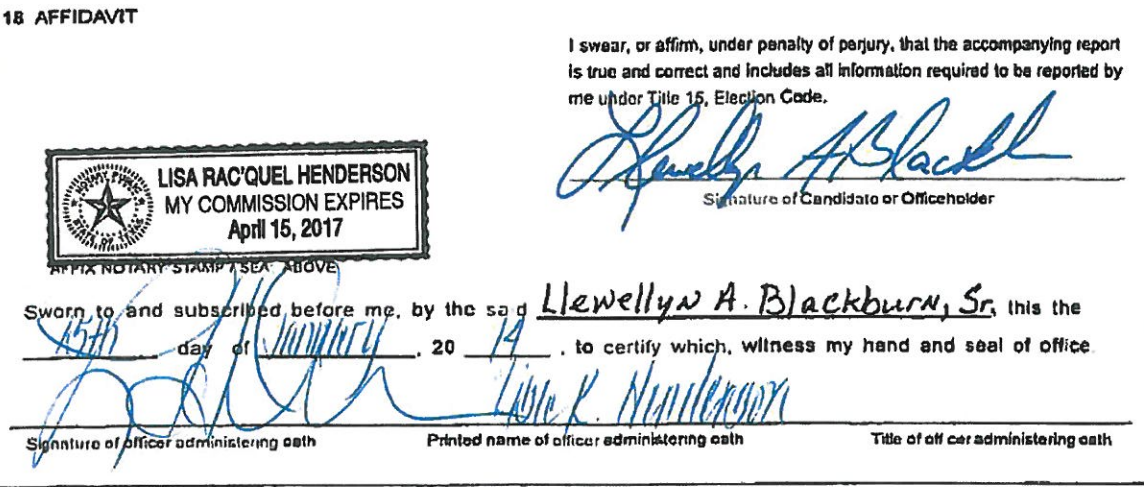 18 AFFIDAVIT
I swear, or affirm, under penalty of perjury, that the accompanying report
is true and correct and includes all information required to be reported by
me under Title 15, Election Code.
Llewellyn A Blackb
Signature of Candidate or Officeholder
NOTARY PUBLIC
STATE OF TEXAS
LISA RAC'QUEL HENDERSON
MY COMMISSION EXPIRES
April 15, 2017
AFFIX NOTARY STAMP / SEAL ABOVE
Sworn to and subscribed before me, by the said Llewellyn A. Blackburn, Sr. this the
15th day of January, 20 14, to certify which, witness my hand and seal of office.
Lisa R. Henderson
Signature of officer administering oath Printed name of officer administering oath Title of officer administering oath